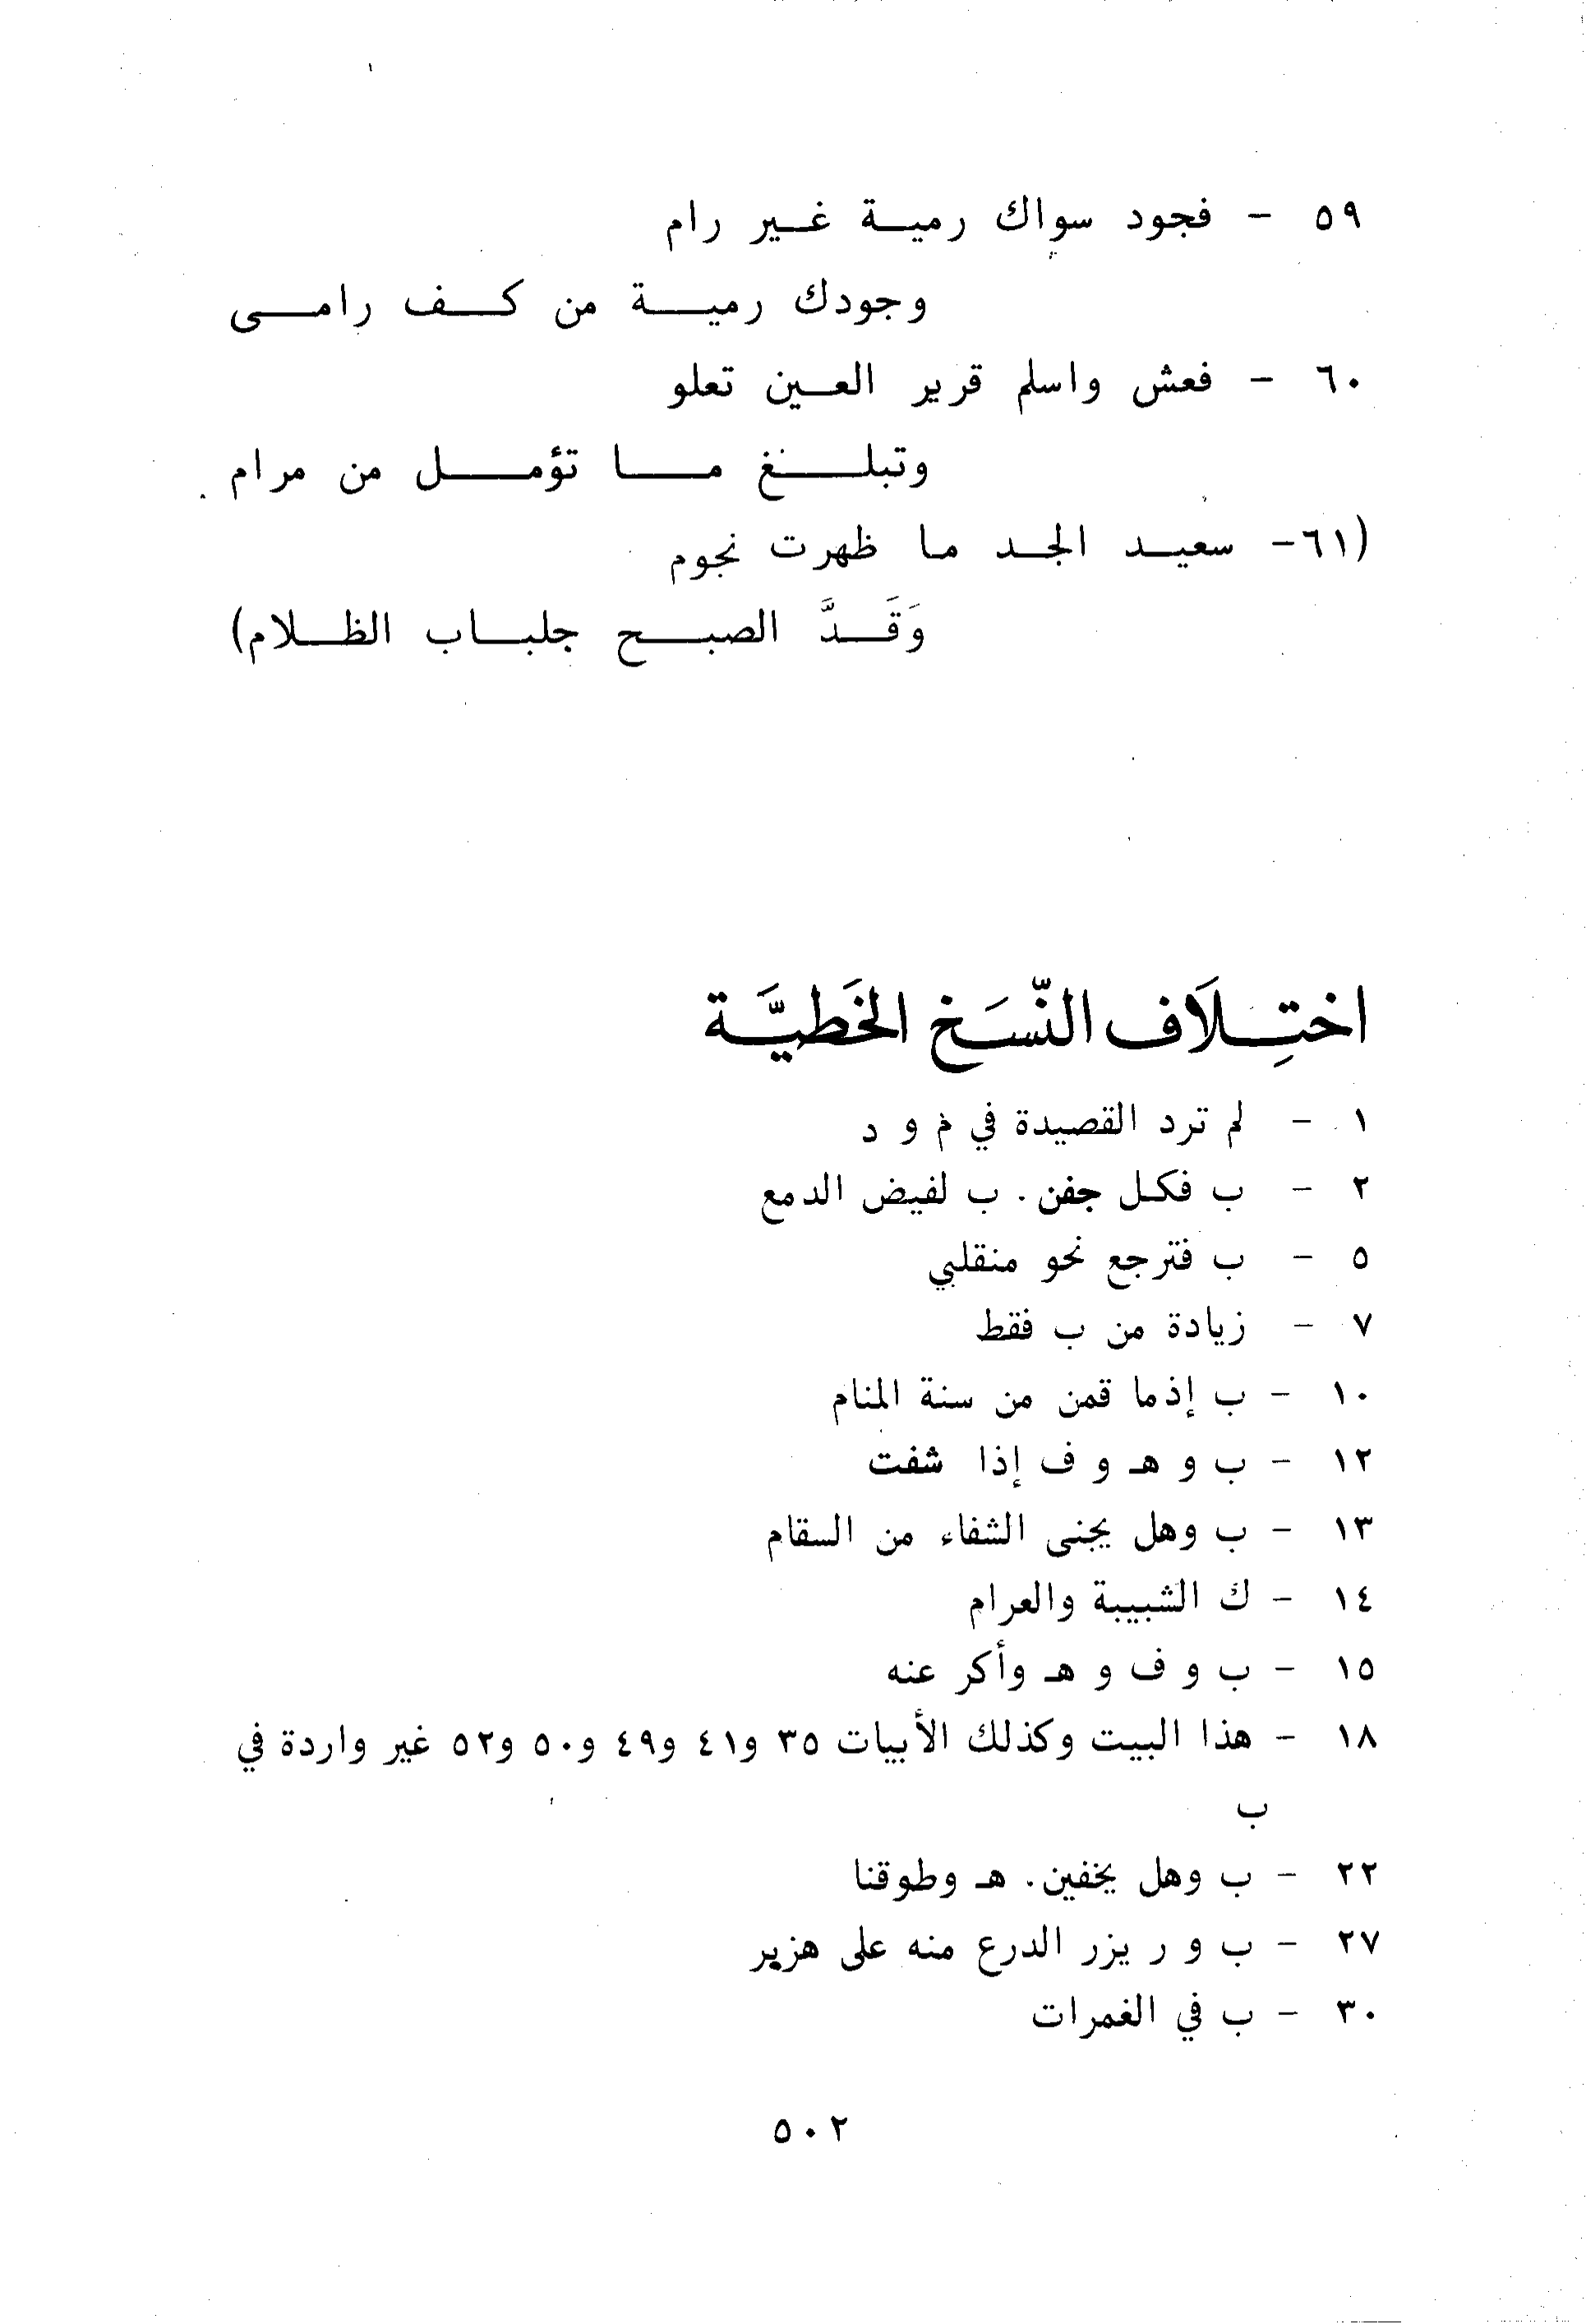 ٥٩ - فجود سواك رمية غير رام
وجودك رمية من كف رامى
٦٠ - فعش واسلم قرير العين تعلو
وتبلغ ما تؤمل من مرام
(٦١- سعيد الجد ما ظهرت نجوم
وَقَدَّ الصبح جلباب الظلام)
اختِلَاف النّسَخ الخَطيَّة
١ - لم ترد القصيدة في م و د
٢ - ب فكل جفن. ب لفيض الدمع
٥ - ب فترجع نحو منقلبي
٧ - زيادة من ب فقط
١٠ - ب إذما قمن من سنة المنام
١٢ - ب و هـ و ف إذا شفت
١٣ - ب وهل يجنى الشفاء من السقام
١٤ - ك الشبيبة والعرام
١٥ - ب و ف و هـ وأكر عنه
١٨ - هذا البيت وكذلك الأبيات ٣٥ و٤١ و٤٩ و٥٠ و٥٢ غير واردة في
ب
٢٢ - ب وهل يخفين. هـ وطوقنا
٢٧ - ب و ر يزر الدرع منه على هزبر
٣٠ - ب في الغمرات
٥٠٢